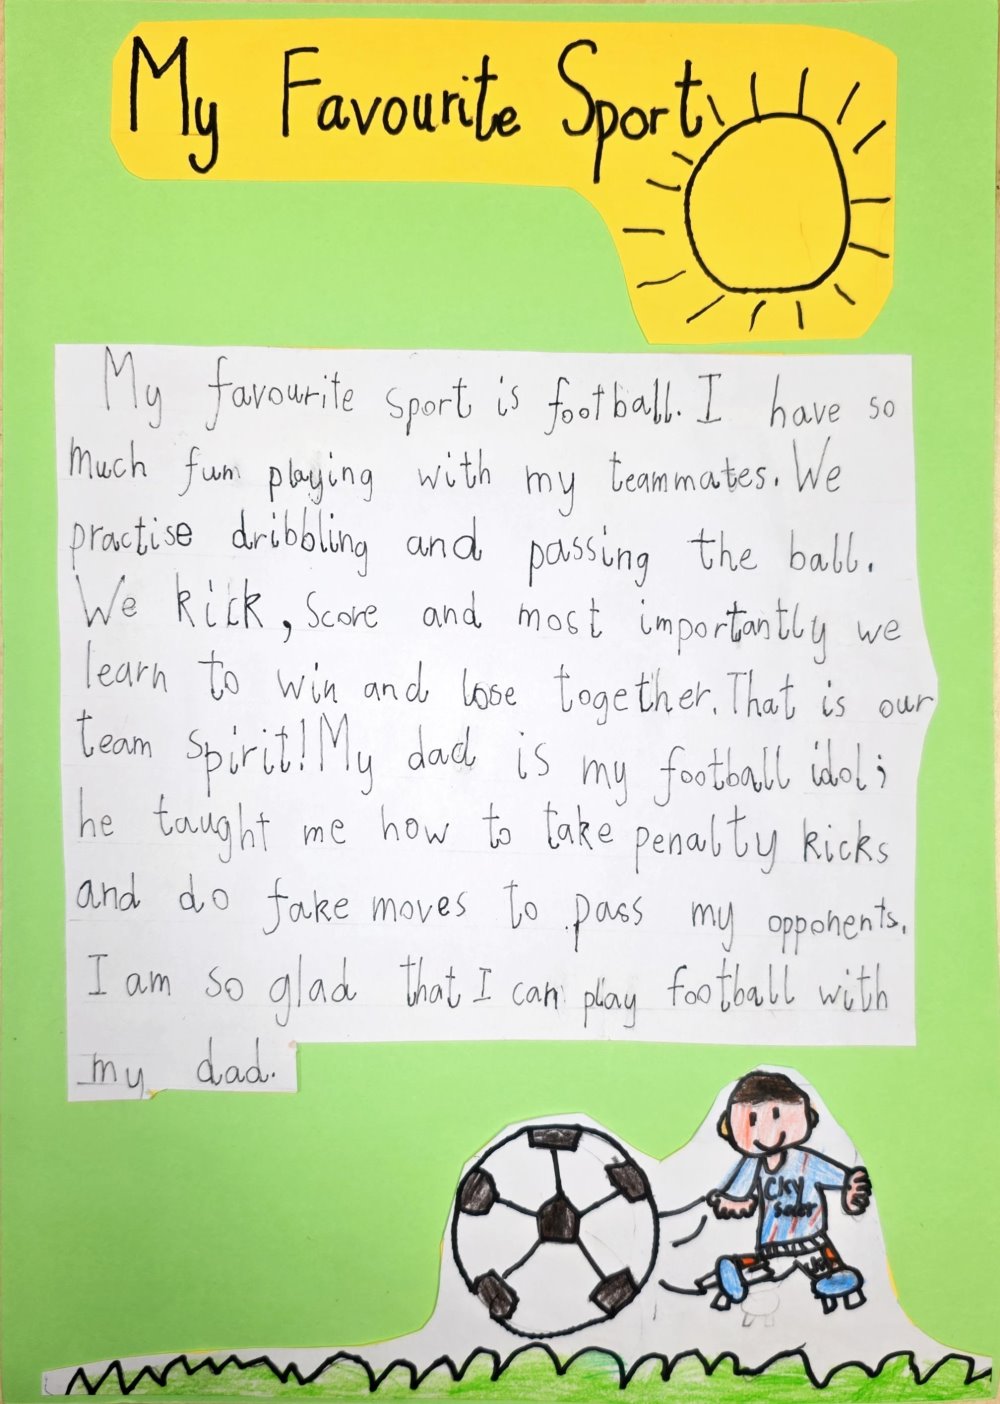 My Favourite Sport
My favourite sport is football. I have so
much fun playing with my teammates. We
practise dribbling and passing the ball.
We kick, score and most importantly we
learn to win and lose together. That is our
team spirit! My dad is my football idol;
he taught me how to take penalty kicks
and do fake moves to pass my opponents.
I am so glad that I can play football with
my dad.
CKY